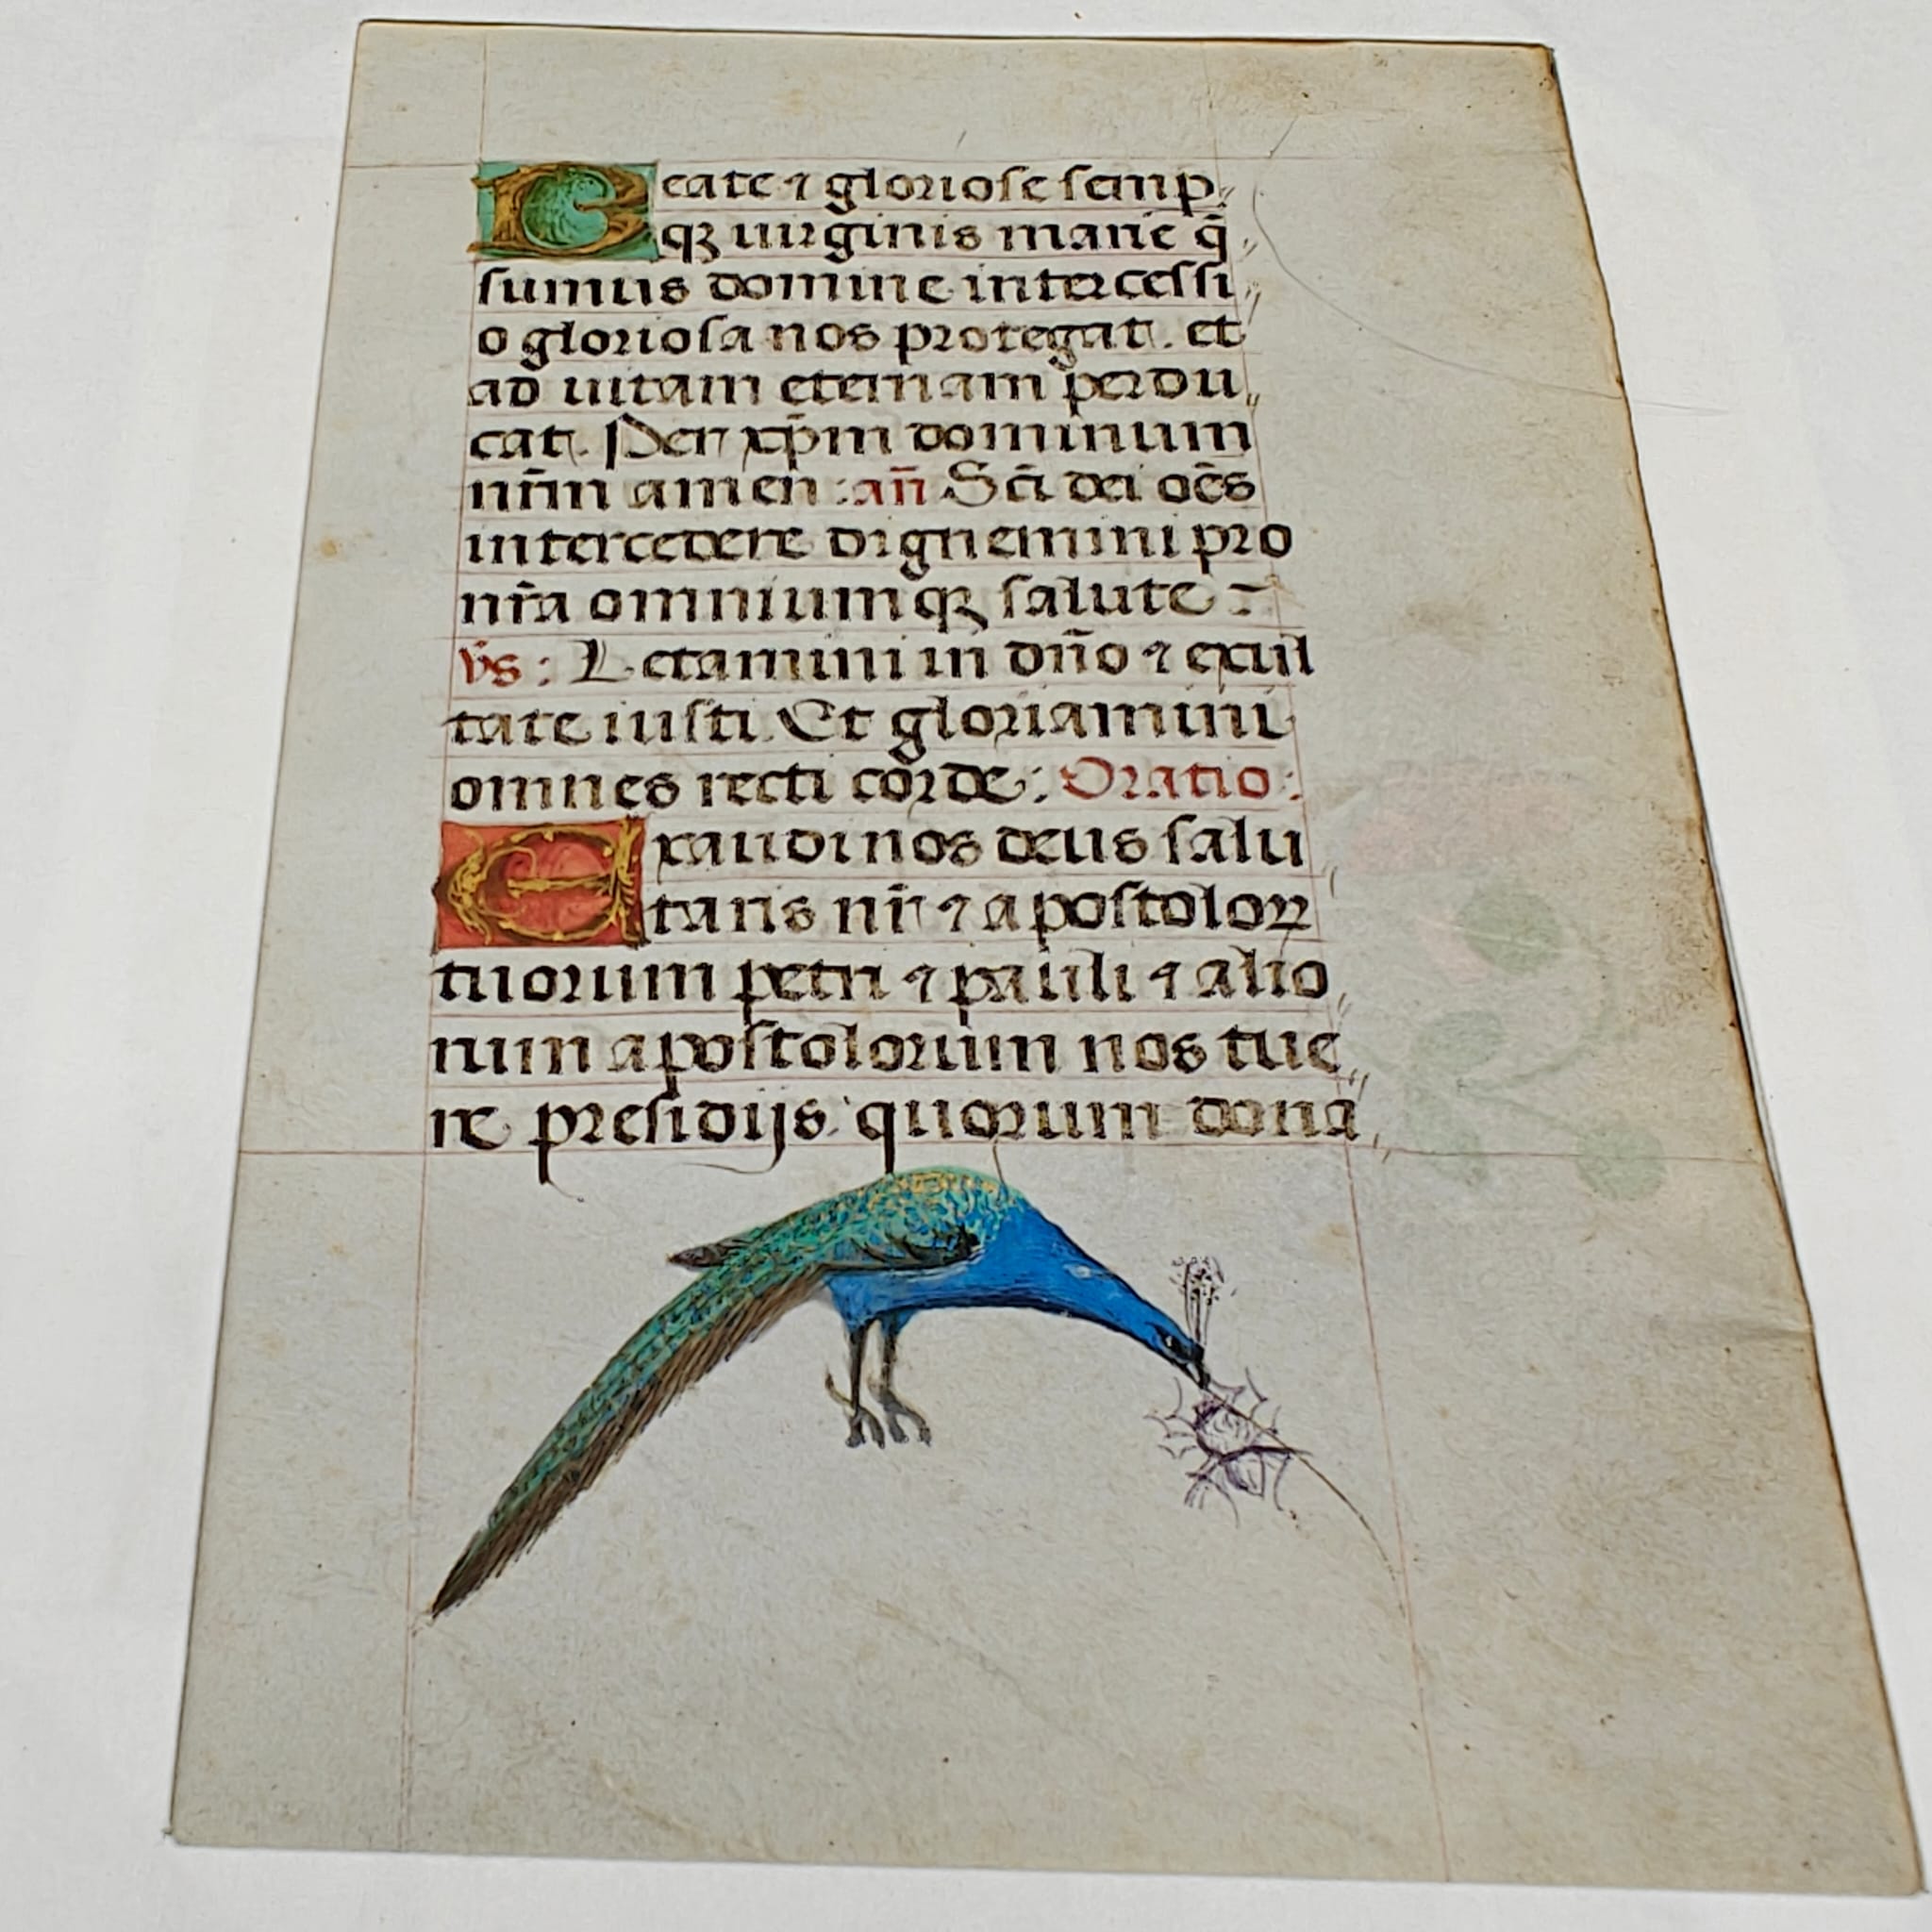 Beate ⁊ gloriose semp
qꝫ uirginis marie q̄
sumus domine intercessi
o gloriosa nos protegat. et
ad uitam eternam perdu
cat. Per xp̄m dominum
nr̄m amen : an̄ Sc̄i dei oēs
intercedere dignemini pro
nr̄a omniumqꝫ salute
v̄s : Letamini in dn̄o ⁊ exul
tate iusti. Et gloriamini
omnes recti corde : Oratio :
Exaudi nos deus salu
taris nr̄ ⁊ apostoloꝝ
tuorum petri ⁊ pauli ⁊ alio
rum apostolorum nos tue
re presidijs quorum dona